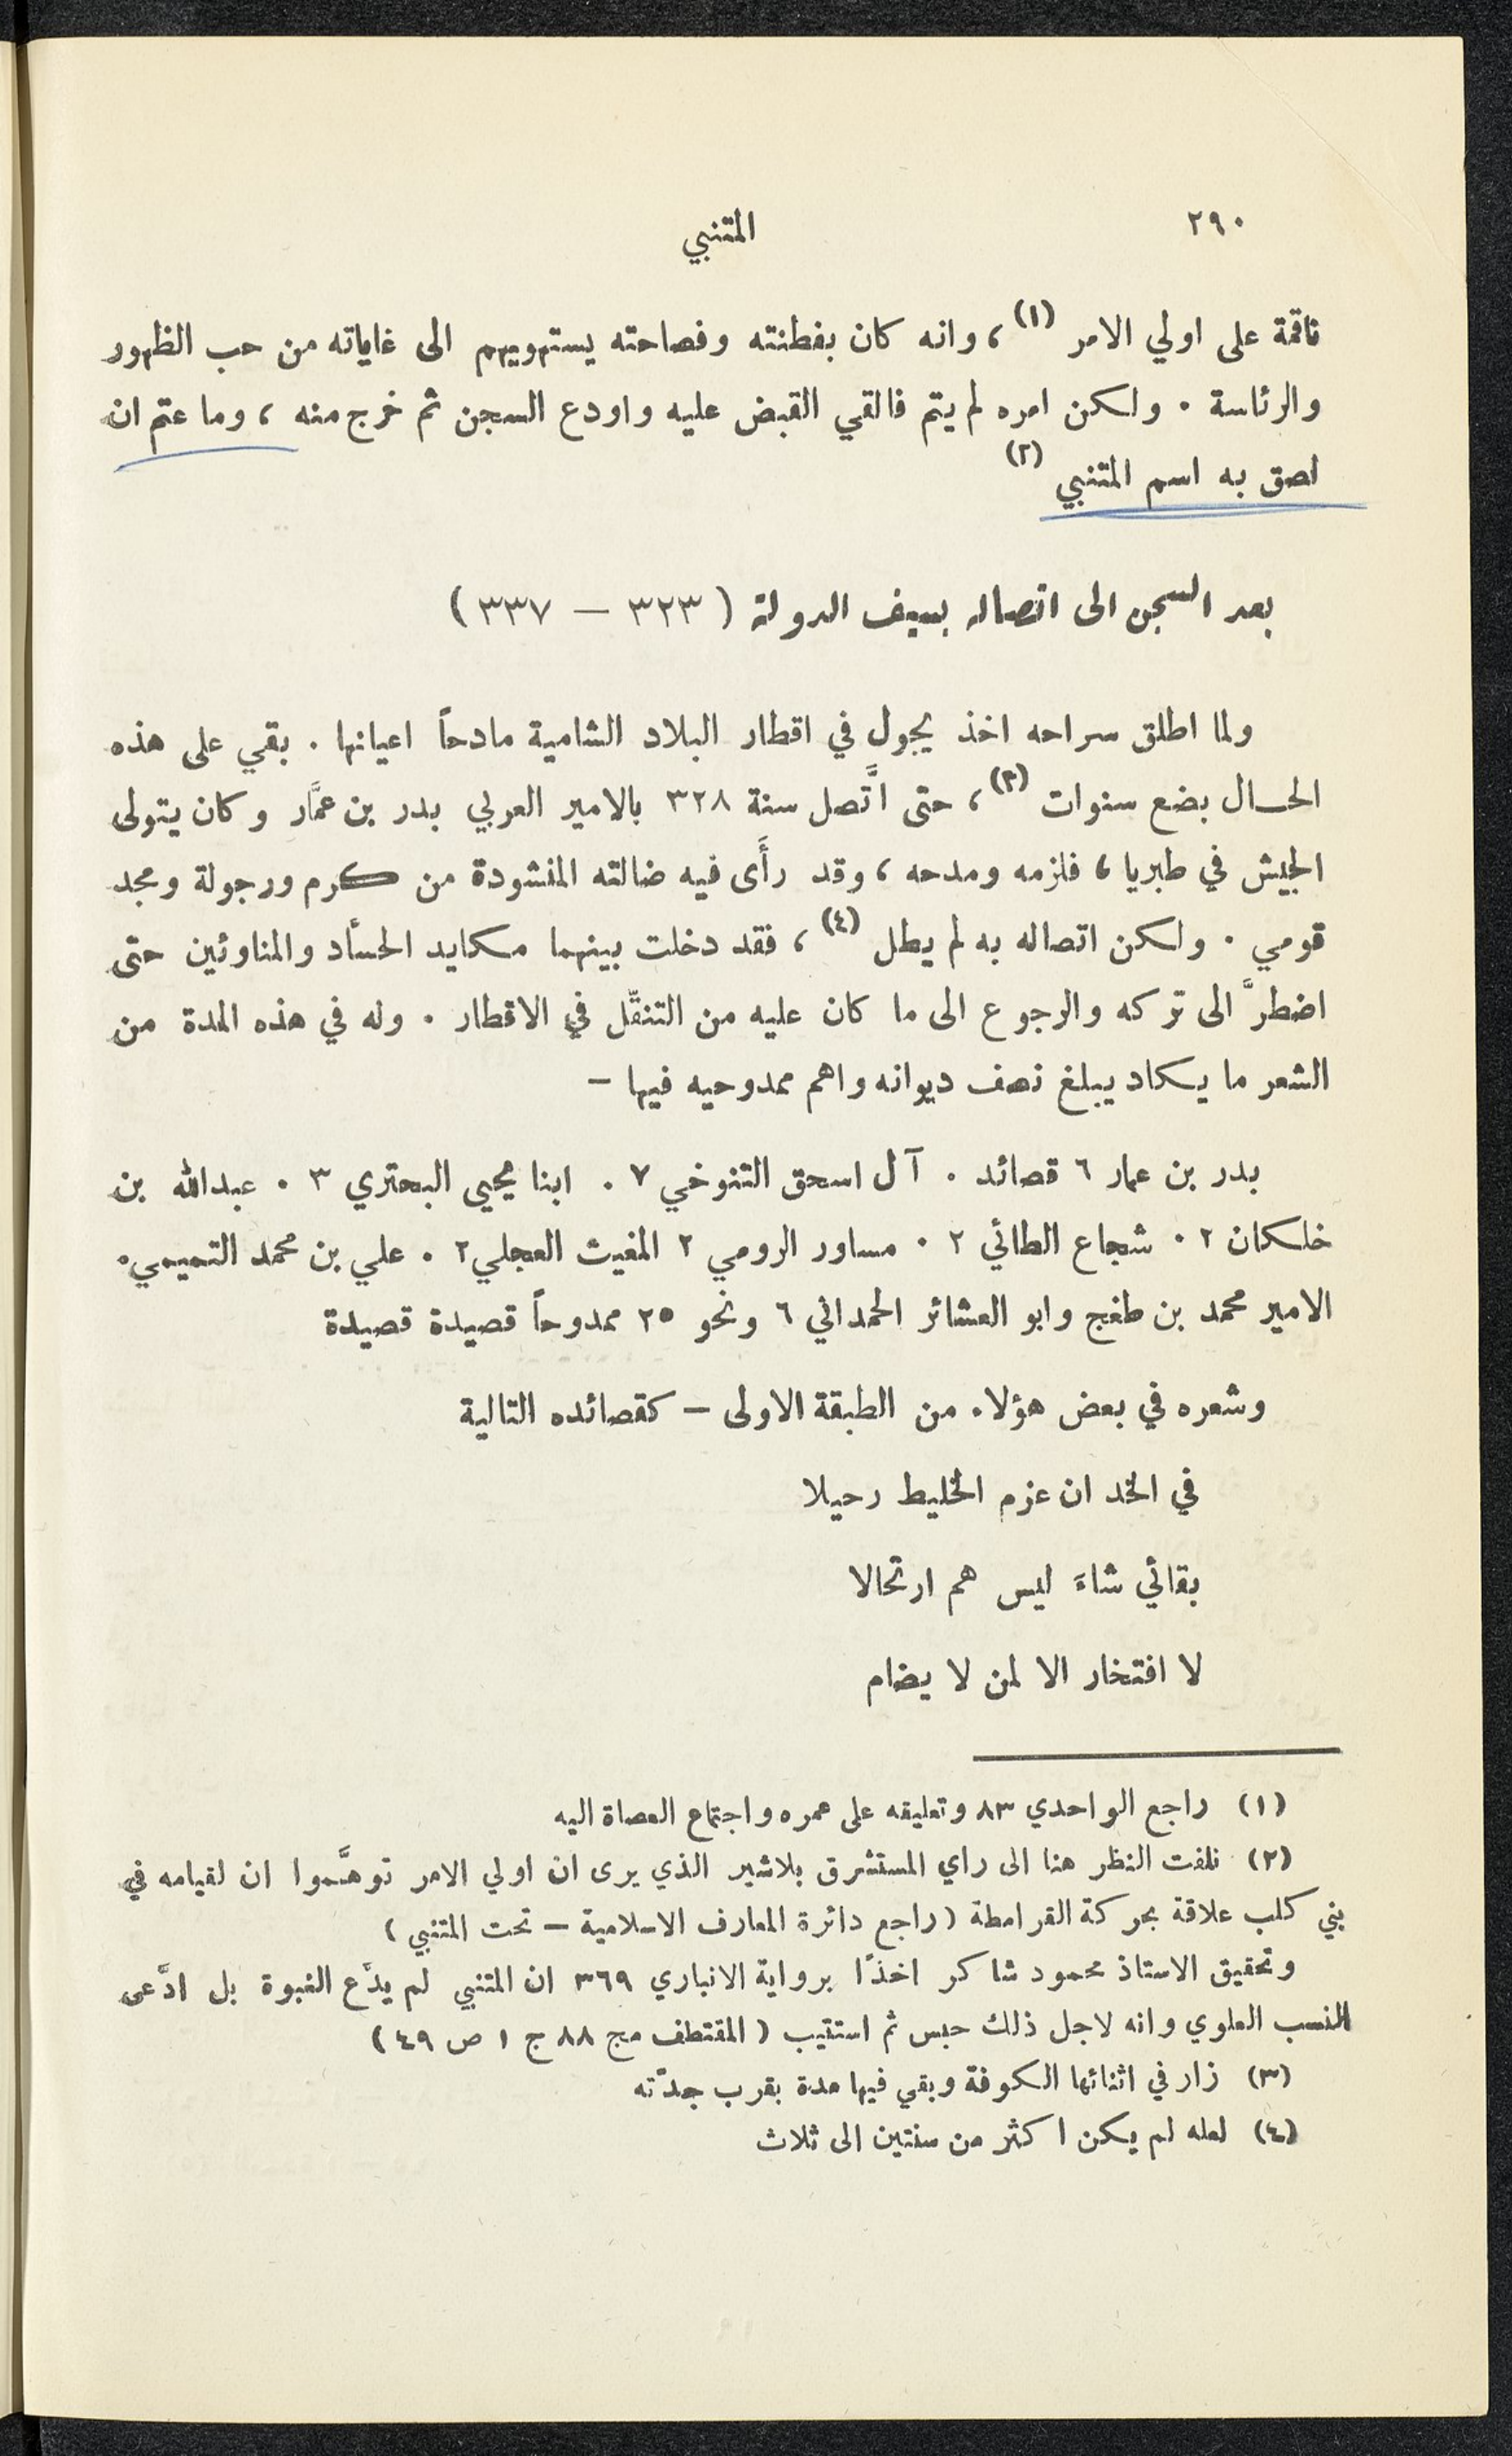 ٢٩٠
المتنبي
ناقمة على اولي الامر (١)، وانه كان بفطنته وفصاحته يستهويهم الى غاياته من حب الظهور
والرئاسة . ولكن امره لم يتم فالقي القبض عليه واودع السجن ثم خرج منه ، وما عتم ان
لصق به اسم المتنبي (٢)
بعد السجن الى اتصاله بسيف الدولة ( ٣٢٣ – ٣٣٧ )
ولما اطلق سراحه اخذ يجول في اقطار البلاد الشامية مادحاً اعيانها . بقي على هذه
الحال بضع سنوات (٣)، حتى اتَّصل سنة ٣٢٨ بالامير العربي بدر بن عمَّار وكان يتولى
الجيش في طبريا ، فلزمه ومدحه ، وقد رأَى فيه ضالته المنشودة من كرم ورجولة ومجد
قومي . ولكن اتصاله به لم يطل (٤)، فقد دخلت بينهما مكايد الحسَّاد والمناوئين حتى
اضطرَّ الى تركه والرجوع الى ما كان عليه من التنقّل في الاقطار . وله في هذه المدة من
الشعر ما يكاد يبلغ نصف ديوانه واهم ممدوحيه فيها –
بدر بن عمار ٦ قصائد . آل اسحق التنوخي ٧ . ابنا يحيى البحتري ٣ . عبدالله بن
خلكان ٢ . شجاع الطائي ٢ . مساور الرومي ٢ المغيث العجلي ٢ . علي بن محمد التميمي.
الامير محمد بن طغج وابو العشائر الحمداني ٦ ونحو ٢٥ ممدوحاً قصيدة قصيدة
وشعره في بعض هؤلاء من الطبقة الاولى – كقصائده التالية
في الخد ان عزم الخليط رحيلا
بقائي شاءَ ليس هم ارتحالا
لا افتخار الا لمن لا يضام
(١) راجع الواحدي ٨٣ وتعليقه على عمره واجتماع العصاة اليه
(٢) نلفت النظر هنا الى راي المستشرق بلاشير الذي يرى ان اولي الامر توهَّموا ان لقيامه في
بني كلب علاقة بحركة القرامطة (راجع دائرة المعارف الاسلامية – تحت المتنبي )
وتحقيق الاستاذ محمود شاكر اخذًا برواية الانباري ٣٦٩ ان المتنبي لم يدّع النبوة بل ادَّعى
النسب العلوي وانه لاجل ذلك حبس ثم استتيب ( المقتطف مج ٨٨ ج ١ ص ٤٩ )
(٣) زار في اثنائها الكوفة وبقي فيها مدة بقرب جدّته
(٤) لعله لم يكن اكثر من سنتين الى ثلاث